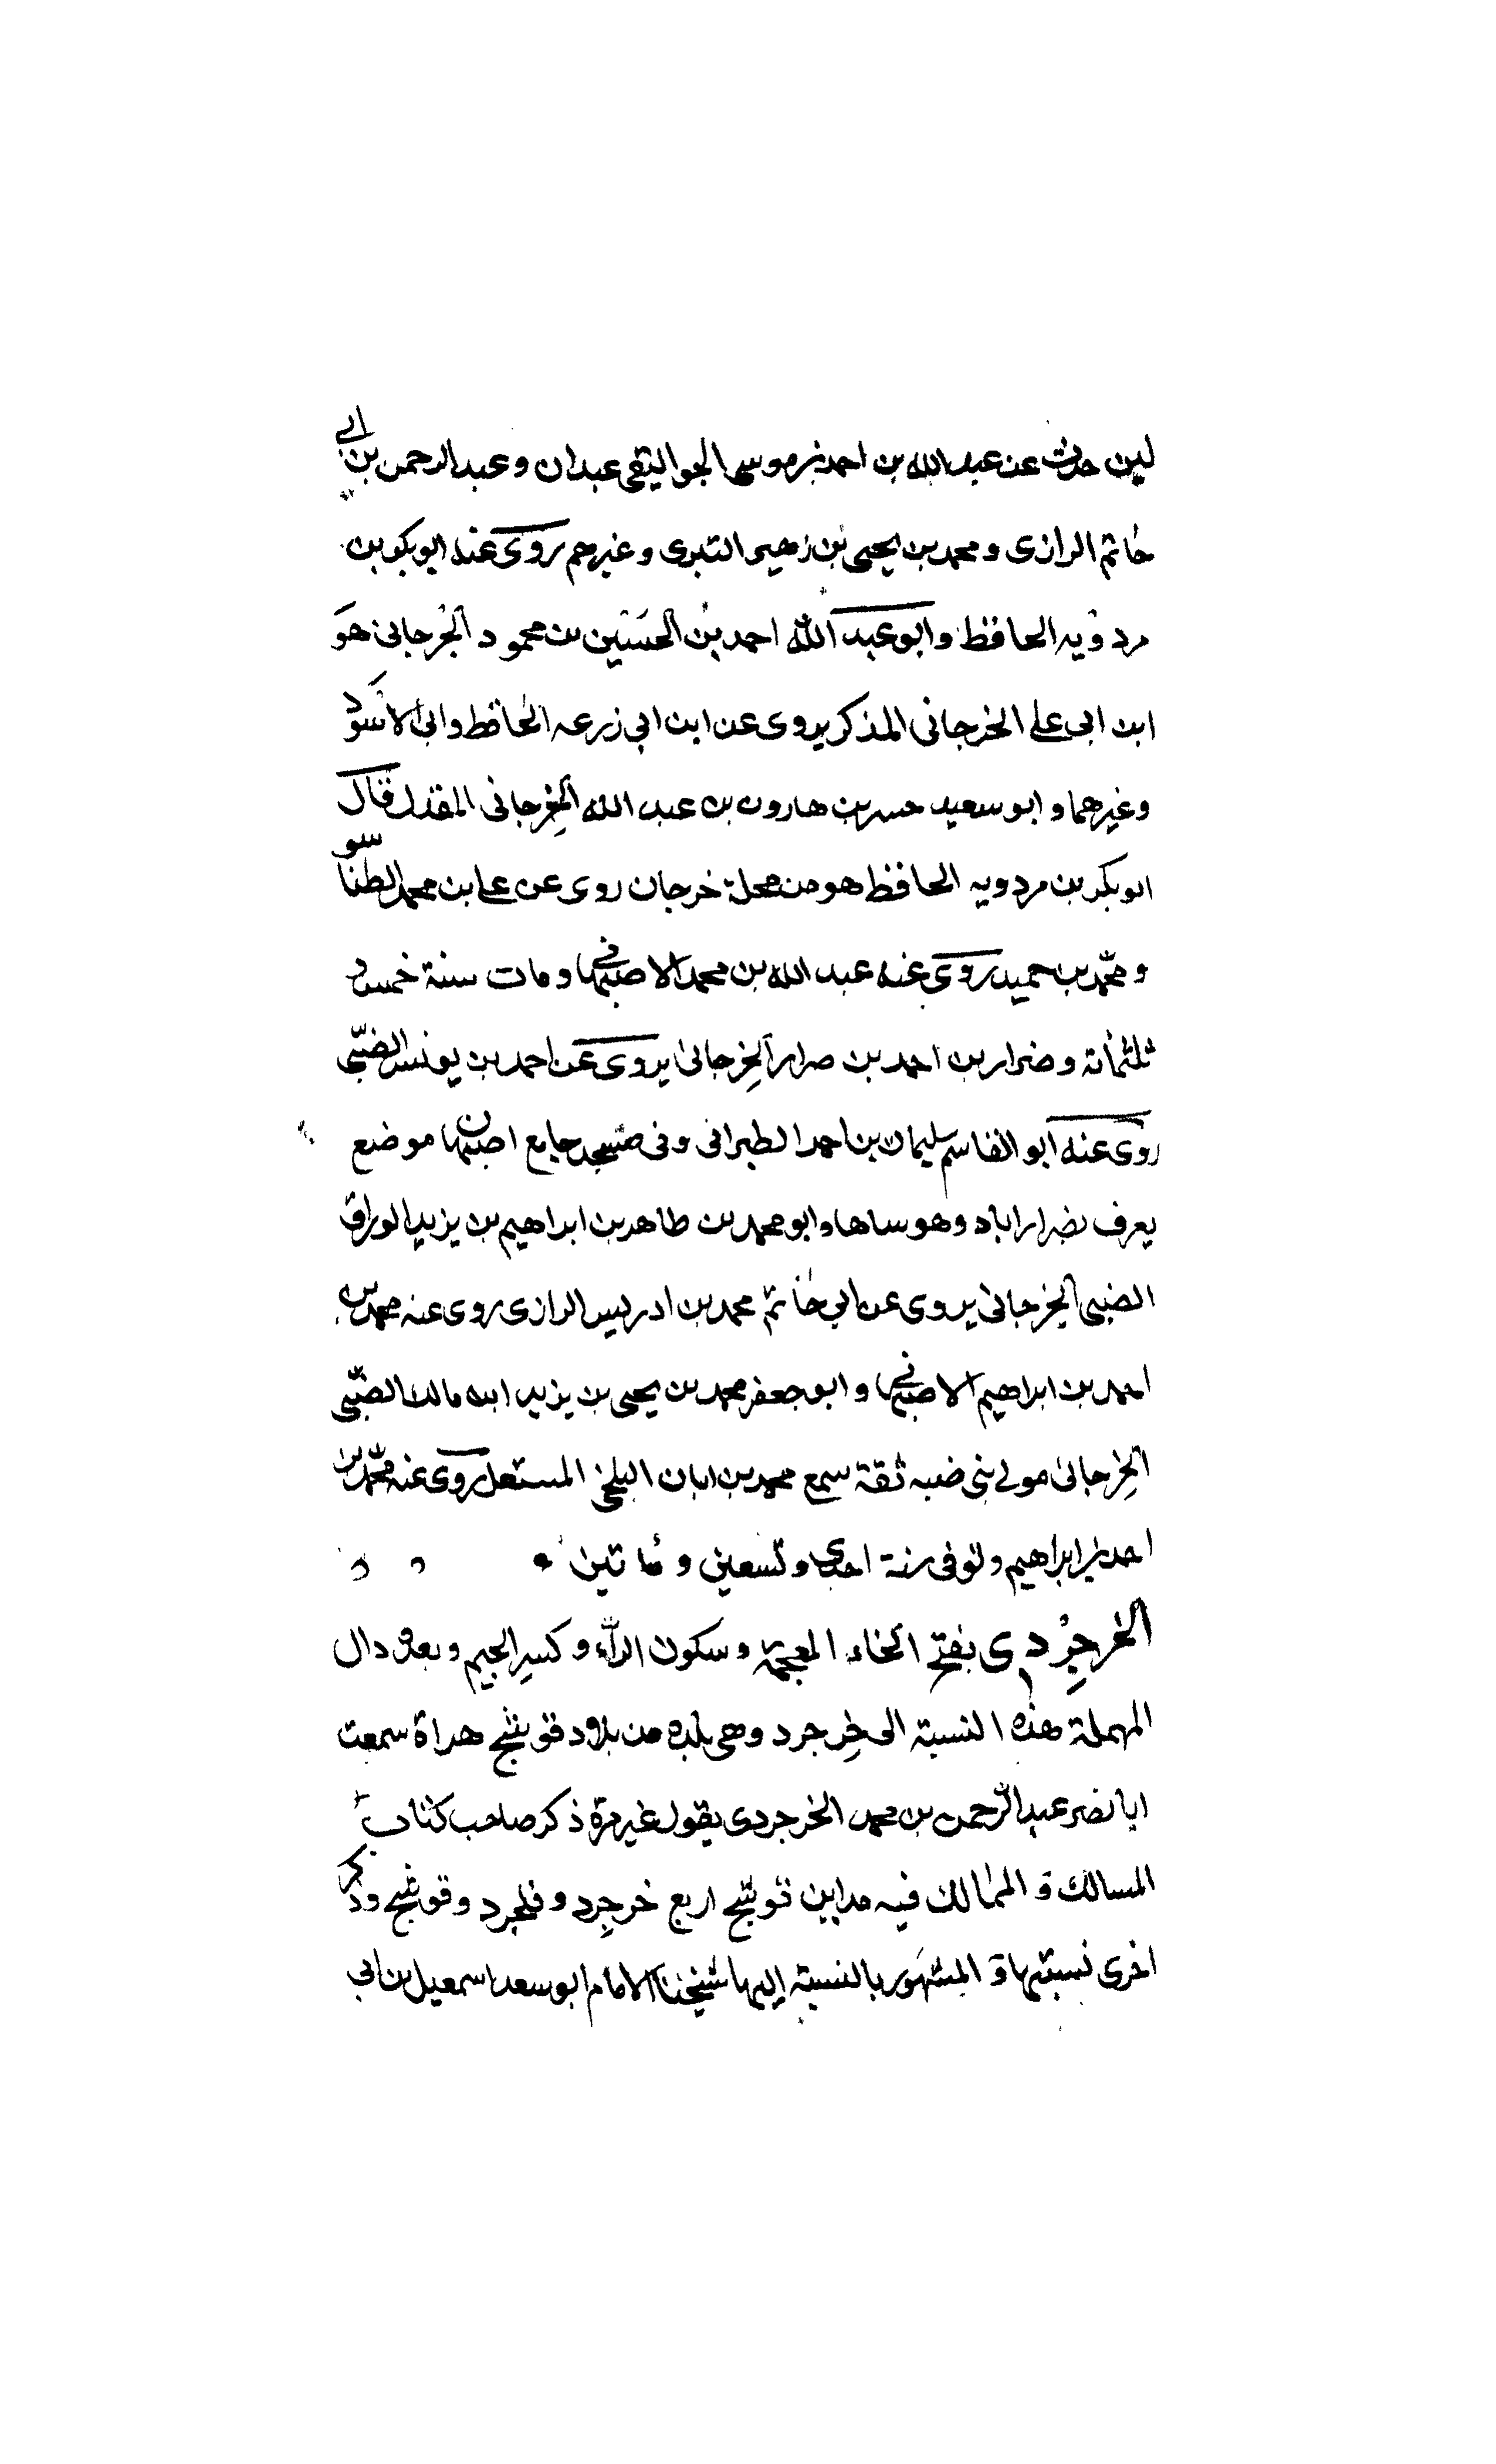 لين حدث عن عبد الله بن احمد بن موسى الجواليقى عبدان و عبد الرحمن بن ابي
حاتم الرازى و محمد بن يحيى بن زهير التبرى و غيرهم روى عنه ابو بكر بن
مردويه الحافظ و ابو عبد الله احمد بن الحسين بن محمود الخرجانى هو
ابن ابى على الخرجانى المذكر يروى عن ابن ابى زرعه الحافظ وابى الاسود
وغيرهما و ابو سعيد حسن بن هارون بن عبد الله الخرجانى قال
ابو بكر بن مردويه الحافظ هو من محلة خرجان روى عن على بن محمد الطنا
و محمد بن حميد روى عنه عبد الله بن محمد الاصبهانى و مات سنة خمس و
ثلثمائة و ضرار بن احمد بن ضرار الخرجانى يروى عن احمد بن يونس الضبى
روى عنه ابو القاسم سليمان بن احمد الطبرانى وفى مسجد جامع اصبهان موضع
يعرف بضراراباد وهو ساها و ابو محمد بن طاهر بن ابراهيم بن يزيد الوراق
الضبى الخرجانى يروى عن ابى حاتم محمد بن ادريس الرازى روى عنه محمد بن
احمد بن ابراهيم الاصبهانى و ابو جعفر محمد بن يحيى بن يزيد ابن مالك الضبى
الخرجانى مولى بنى ضبه ثقة سمع محمد بن ابان البلخى المستملى روى عنه محمد بن
احمد بن ابراهيم و توفى سنة احدى و تسعين و ماتين
الخرجردى بفتح الخاء المعجمة و سكون الراء و كسر الجيم و بعده دال
المهملة هذه النسبة الى خرجرد وهى بلده من بلاد فوشنج هراة سمعت
ابا نصر عبد الرحمن بن محمد الخرجردى يقول غير مرة ذكر صاحب كتاب
المسالك و الممالك فيه مداين فوشنج اربع خرجرد و فلجرد و فوشنج وذكر
اخرى نسيتها و المشهور بالنسبة اليها شيخنا الامام ابو سعد اسمعيل بن ابى